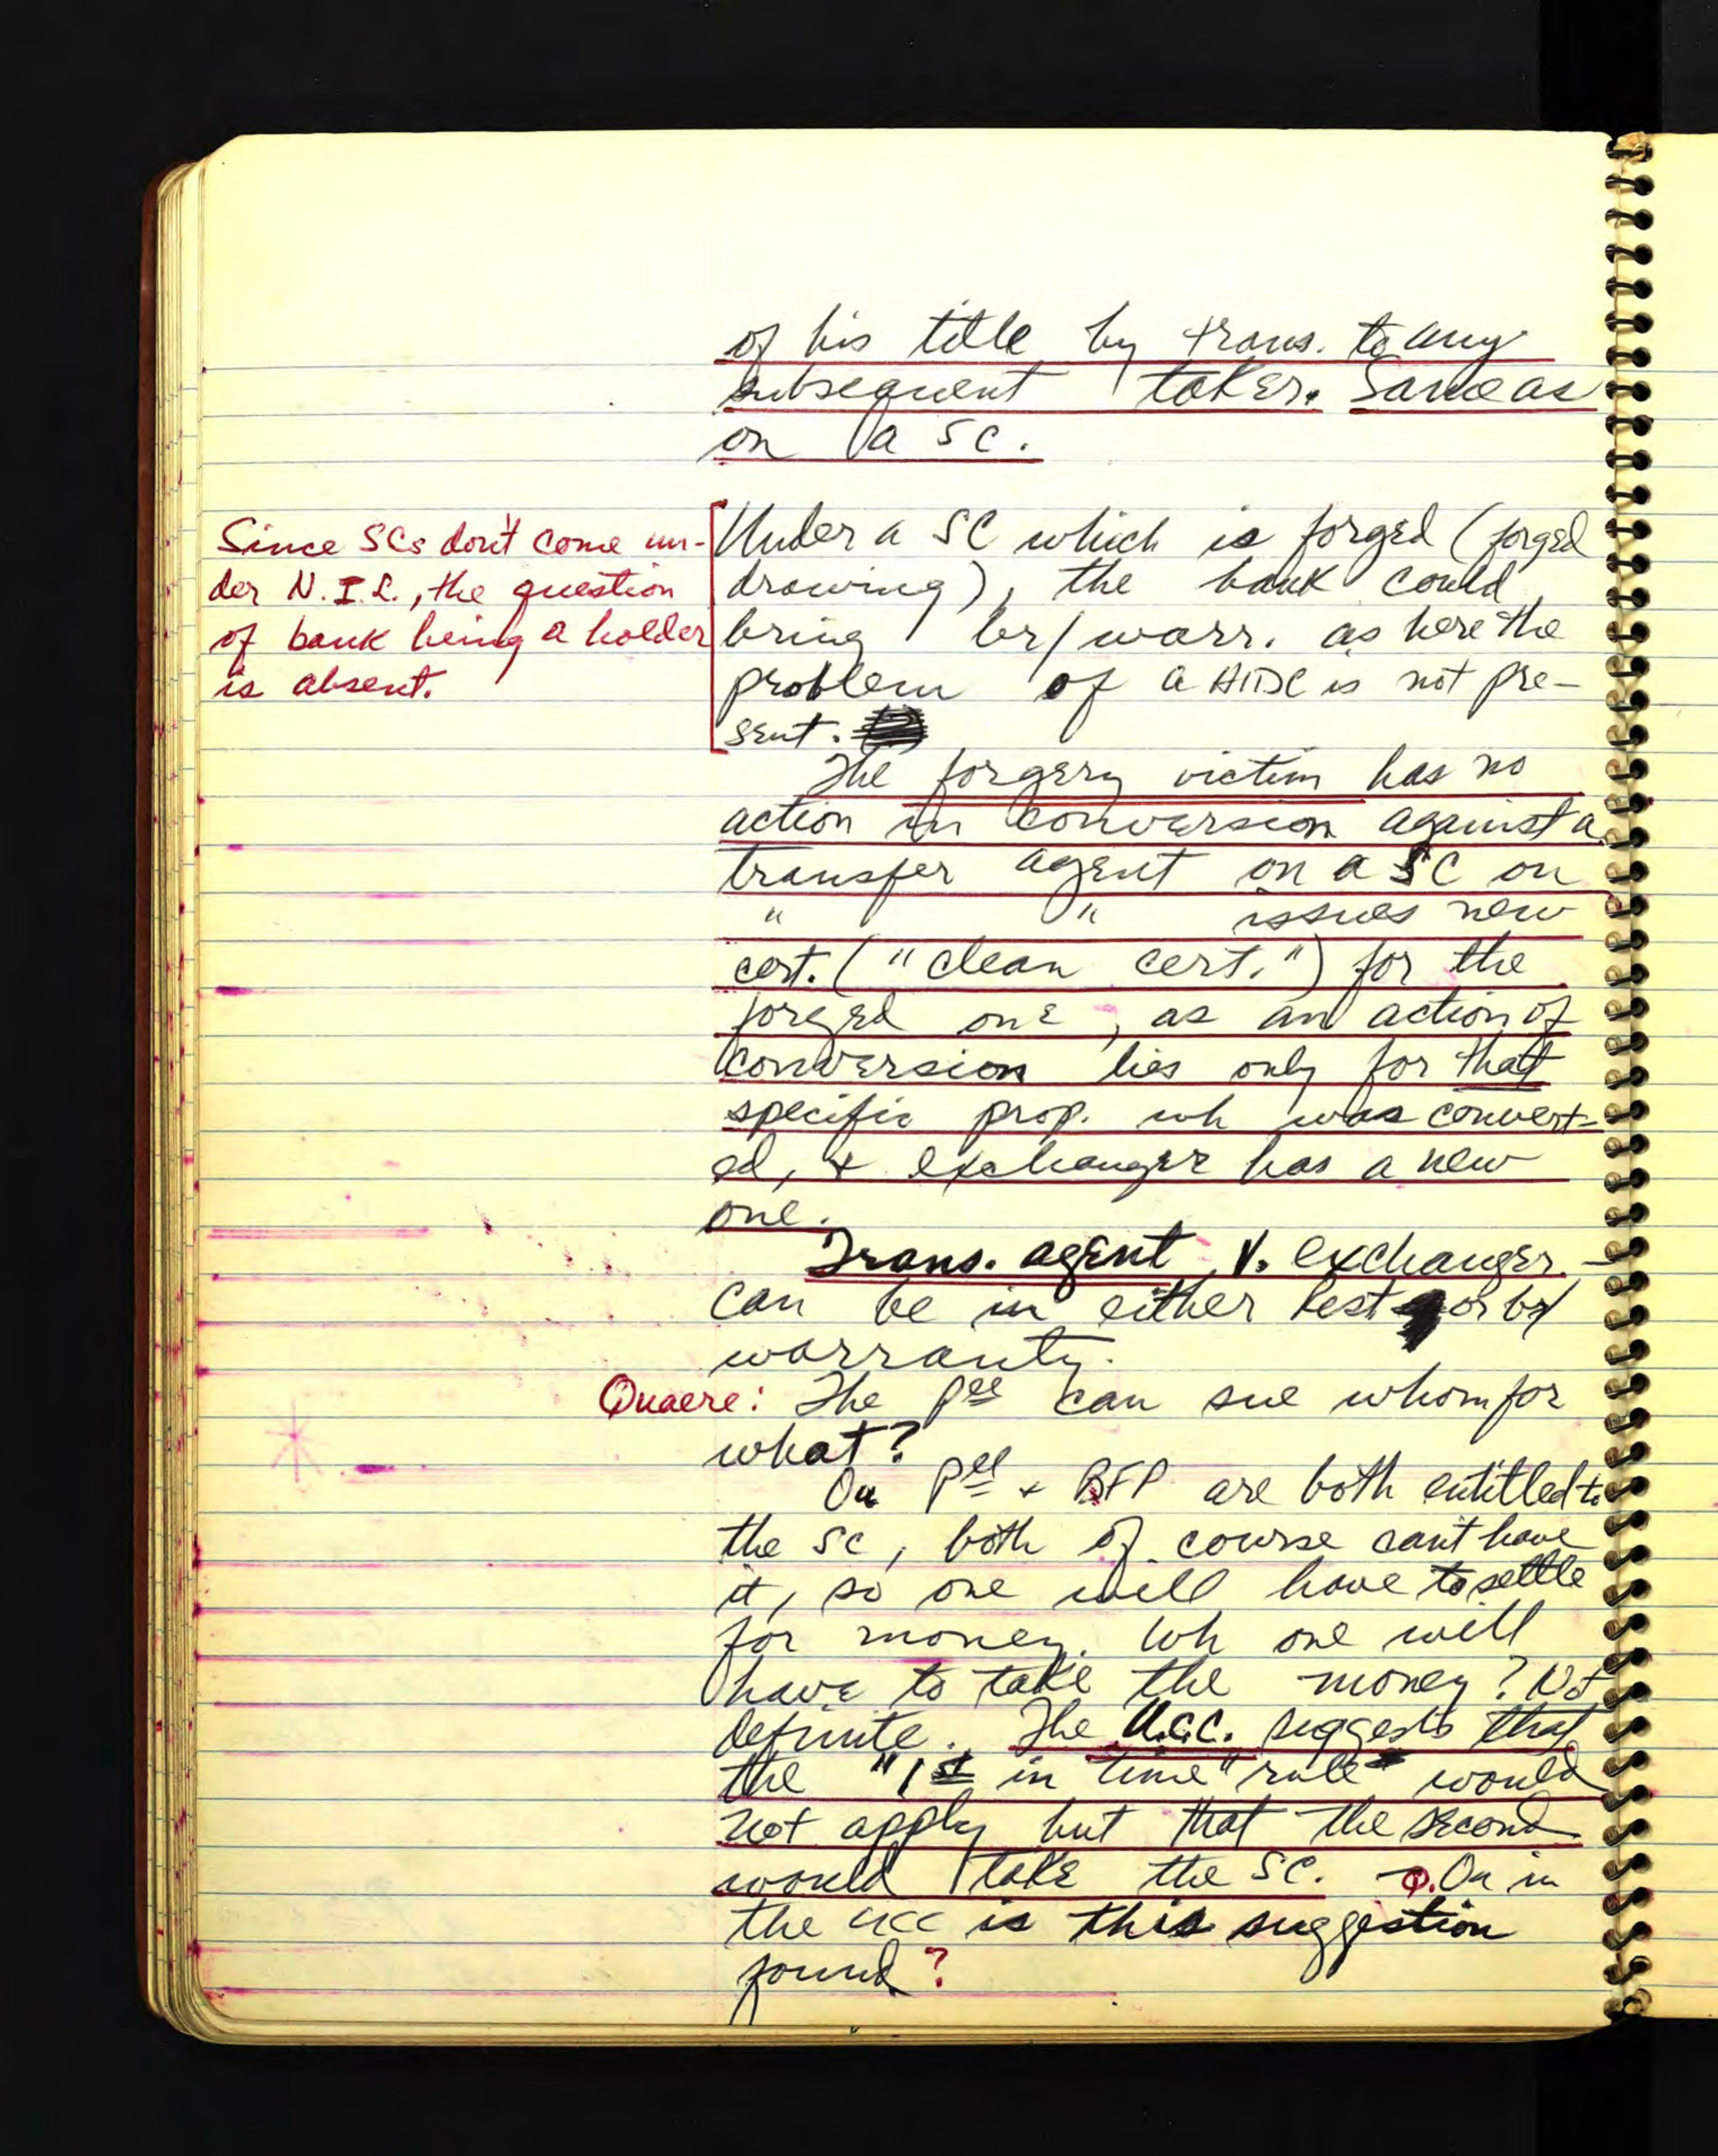 of his title by trans. to any
subsequent taker. Same as
on a SC.
Since SCs don't come un-
der N.I.L., the question
of bank being a holder
is absent.
Under a SC which is forged (forged
drawing), the bank could
bring br/warr. as here the
problem of a HIDC is not pre-
sent.
The forgery victim has no
action in conversion against a
transfer agent on a SC on
" " issues new
cert. ("clean cert.") for the
forged one, as an action of
conversion lies only for that
specific prop. wh was convert-
ed, & exchanger has a new
one.
Trans. agent v. exchanger -
can be in either rest or br/
warranty.
Quaere: The Pee can sue whom for
what?
On Pee + BFP are both entitled to
the SC, both of course can't have
it, so one will have to settle
for money. Wh one will
have to take the money? Not
definite. The U.C.C. suggests that
the "1st in time" rule would
not apply but that the second
would take the SC. Q. On in
the UCC is this suggestion
found?